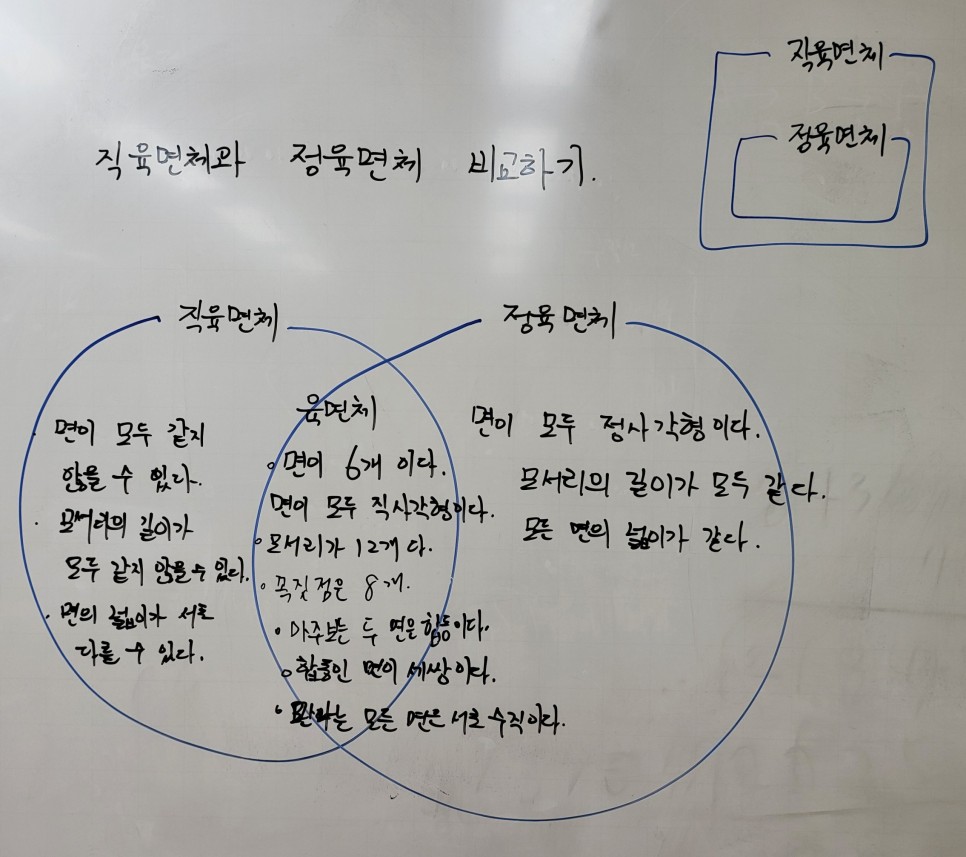 직육면체
정육면체
직육면체과 정육면체 비교하기.
직육면체
면이 모두 같지
않을 수 있다.
모서리의 길이가
모두 같지 않을 수 있다.
면의 넓이가 서로
다를 수 있다.
육면체
면이 6개 이다.
면이 모두 직사각형이다.
모서리가 12개다.
꼭짓점은 8개.
마주보는 두 면은 합동이다.
합동인 면이 세쌍이다.
만나는 모든 면은 서로 수직이다.
정육면체
면이 모두 정사각형이다.
모서리의 길이가 모두 같다.
모든 면의 넓이가 같다.